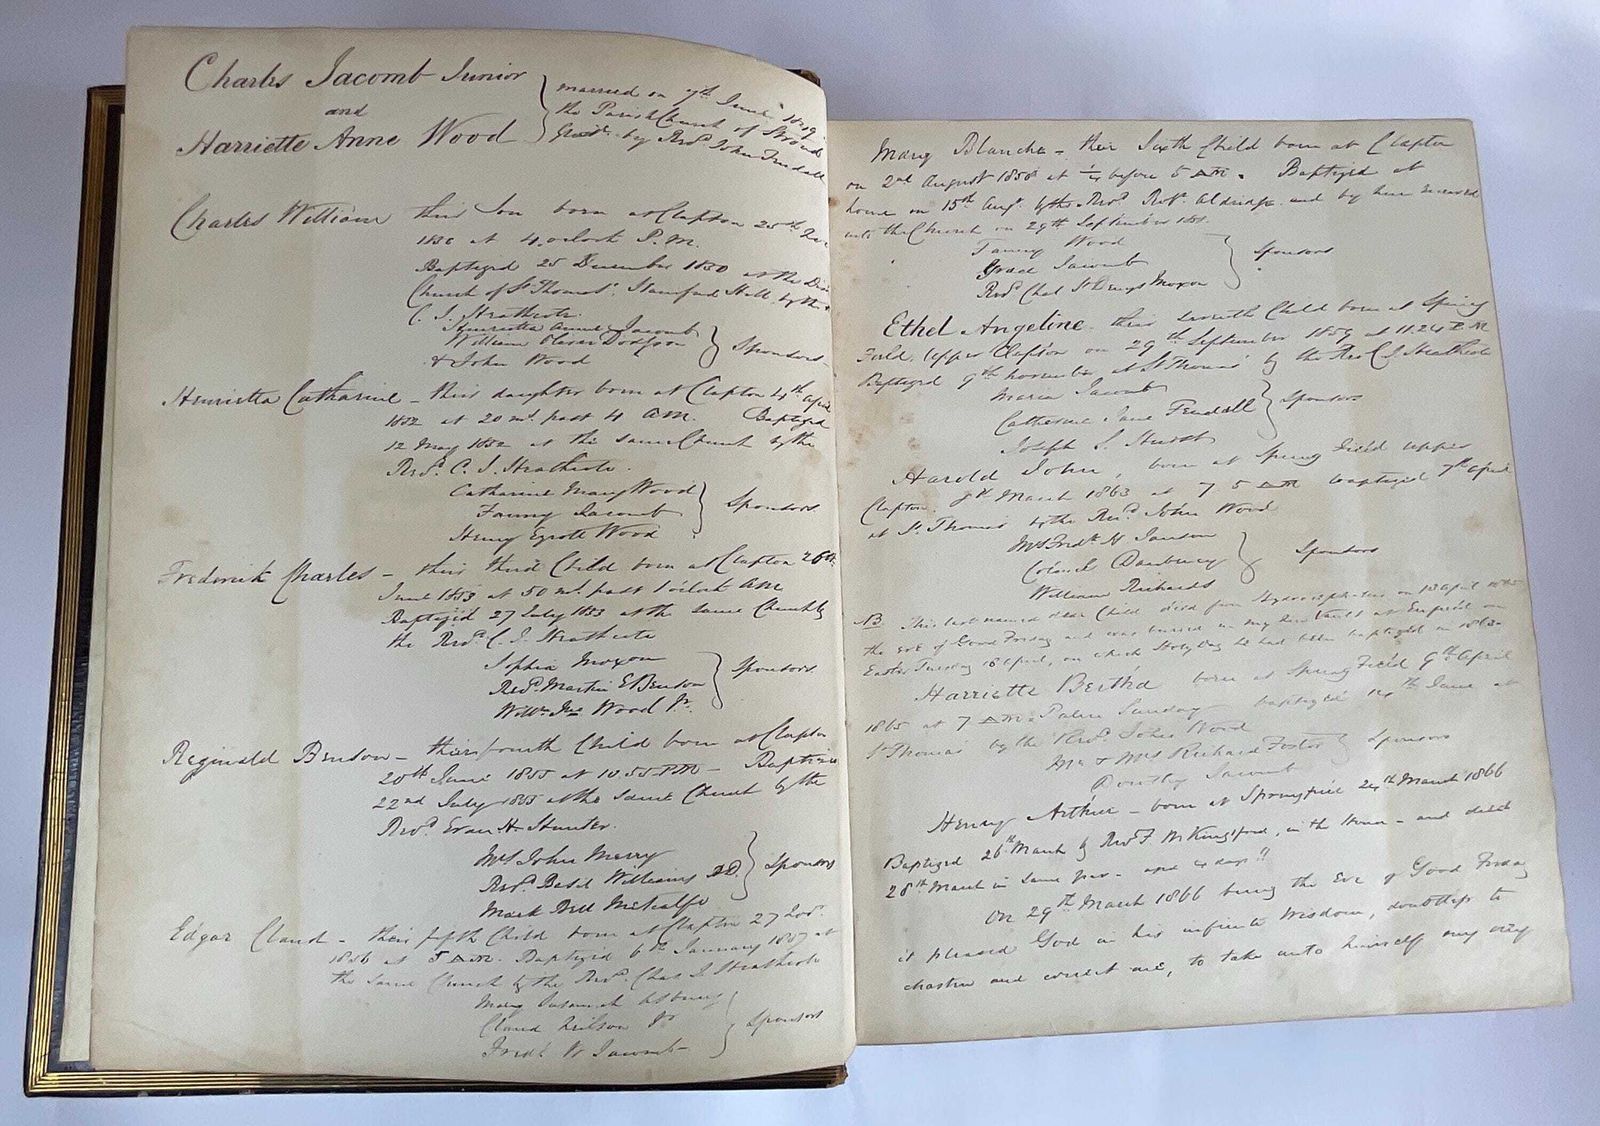 Charles Jacomb Junior
and
Harriette Anne Wood
married on 7th June 1849
the Parish Church of Strood
by Revd. John Fendall
Charles William their Son born at Clapton 25th
1850 at 4 o'clock P.M.
Baptized 25 December 1850 at the
Church of St. Thomas' Stamford Hill by the
C. J. Heathcote.
Henrietta Anne Jacomb
William Oliver Dodgson
& John Wood
Sponsors
Henrietta Catharine - their daughter born at Clapton 4th April
1852 at 20 mts. past 4 AM. Baptized
12 May 1852 at the same Church by the
Revd. C. J. Heathcote.
Catharine Mary Wood
Fanny Jacomb
Henry Wood
Sponsors.
Frederick Charles - their third Child born at Clapton 26th
June 1853 at 50 mts. past 1 o'clock AM
Baptized 27 July 1853 at the same Church by
the Revd. C. J. Heathcote
Sophia Moxon
Revd. Martin E Benson
Willm. Jno Wood Jr.
Sponsors.
Reginald Benson - their fourth Child born at Clapton
20th June 1855 at 10.55 PM - Baptized
22nd July 1855 at the same Church by the
Revd. Evan H. Hunter.
Mrs John Merry
Revd. Basil Williams
Mark Bell Metcalfe
Sponsors
Edgar Claud - their fifth Child born at Clapton 27 Novr.
1856 at 5 AM. Baptized 6th January 1857 at
the same Church by the Revd. Chas J. Heathcote
Mary Susannah
Claud Neilson Jr
Fredk. W Jacomb -
Sponsors
Mary Blanche - their Sixth Child born at Clapton
on 2nd August 1858 at ¼ before 5 AM. Baptized at
home on 15th Augt. by the Revd. Robt. Aldridge and by him received
into the Church on 29th September 1858.
Fanny Wood
Jacomb
Revd. Chas St Denys Moxon
Sponsors
Ethel Angeline - their seventh Child born at Spring
Field, Upper Clapton on 29th September 1859 at 11.24 P.M
Baptized 9th November at St Thomas' by the Rev C J Heathcote
Maria Jacomb
Catherine Jane Fendall
Joseph S. Hurst
Sponsors
Harold John, born at Spring Field Upper
Clapton 7th March 1863 at 7 5 AM baptized 7th April
at St. Thomas' by the Revd. John Wood
Mrs Fredk H Janson
Colonel Danbury
William Richards
Sponsors
NB This last named dear Child died from Hydrocephalus on 13 April
the eve of Good Friday and was buried in my new Vault at on
Easter Tuesday 18 April, on which Holy Day he had been baptized in 1863 -
Harriette Bertha born at Spring Field 9th April
1865 at 7 AM - Palm Sunday - baptized 14th June at
St Thomas' by the Revd. John Wood
Mr & Mrs Richard Foster
Dorothy Jacomb
Sponsors
Henry Arthur - born at Springfield 24th March 1866
Baptized 26th March by Revd F W Kingsford, in the House - and died
28th March in same year - aged 4 days!!
On 29th March 1866 being the Eve of Good Friday
it pleased God in his infinite Wisdom, doubtless to
chasten and correct me, to take unto himself my very